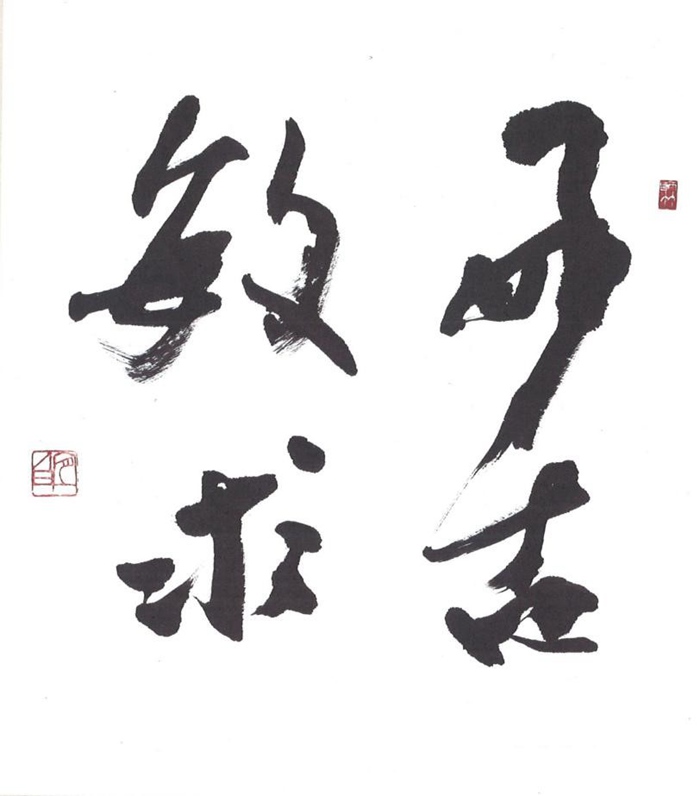 好古
敏求